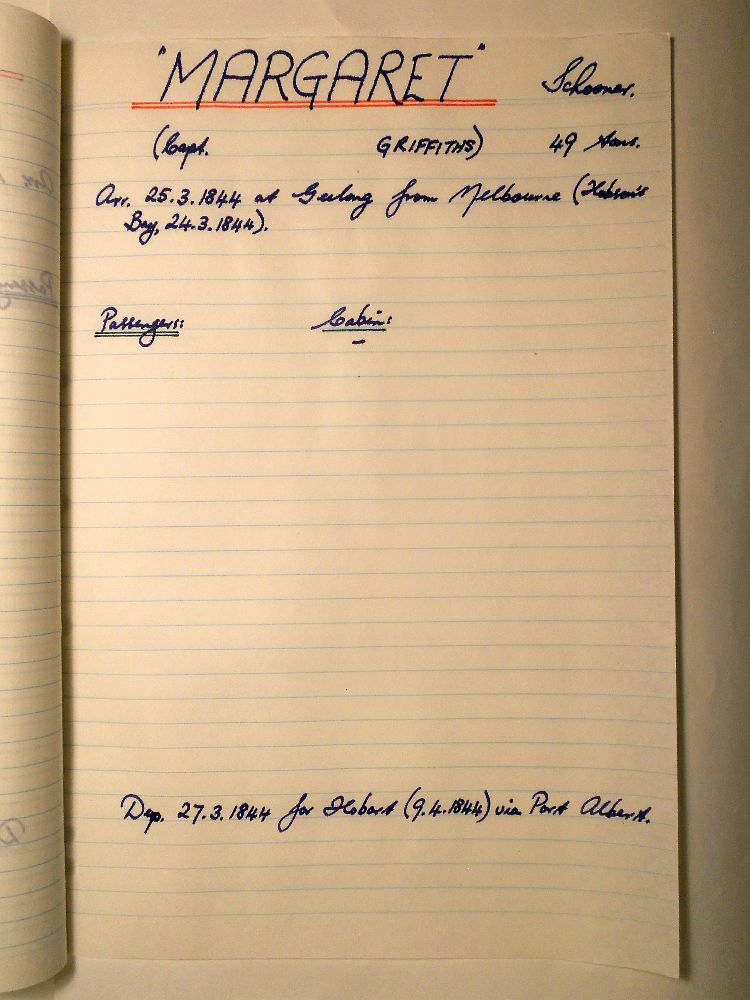 "MARGARET" Schooner.
(Capt. GRIFFITHS) 49 tons.
Arr. 25.3.1844 at Geelong from Melbourne (Hobson's
Bay, 24.3.1844).
Passengers: Cabin:
–
Dep. 27.3.1844 for Hobart (9.4.1844) via Port Albert.